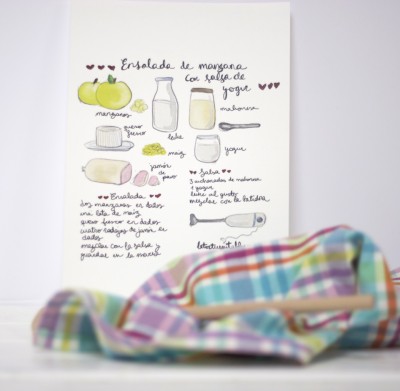 Ensalada de manzana
Con salsa de
yogur
manzanas
leche
mahonesa
queso
fresco
maíz
yogur
jamón
de
pavo
Salsa
3 cucharadas de mahonesa
1 yogur
leche al gusto
mezclar con la batidora
Ensalada
dos manzanas en dados
una lata de maíz
queso fresco en dados
cuatro rodajas de jamón en
dados
mezclar con la salsa y
guardar en la nevera